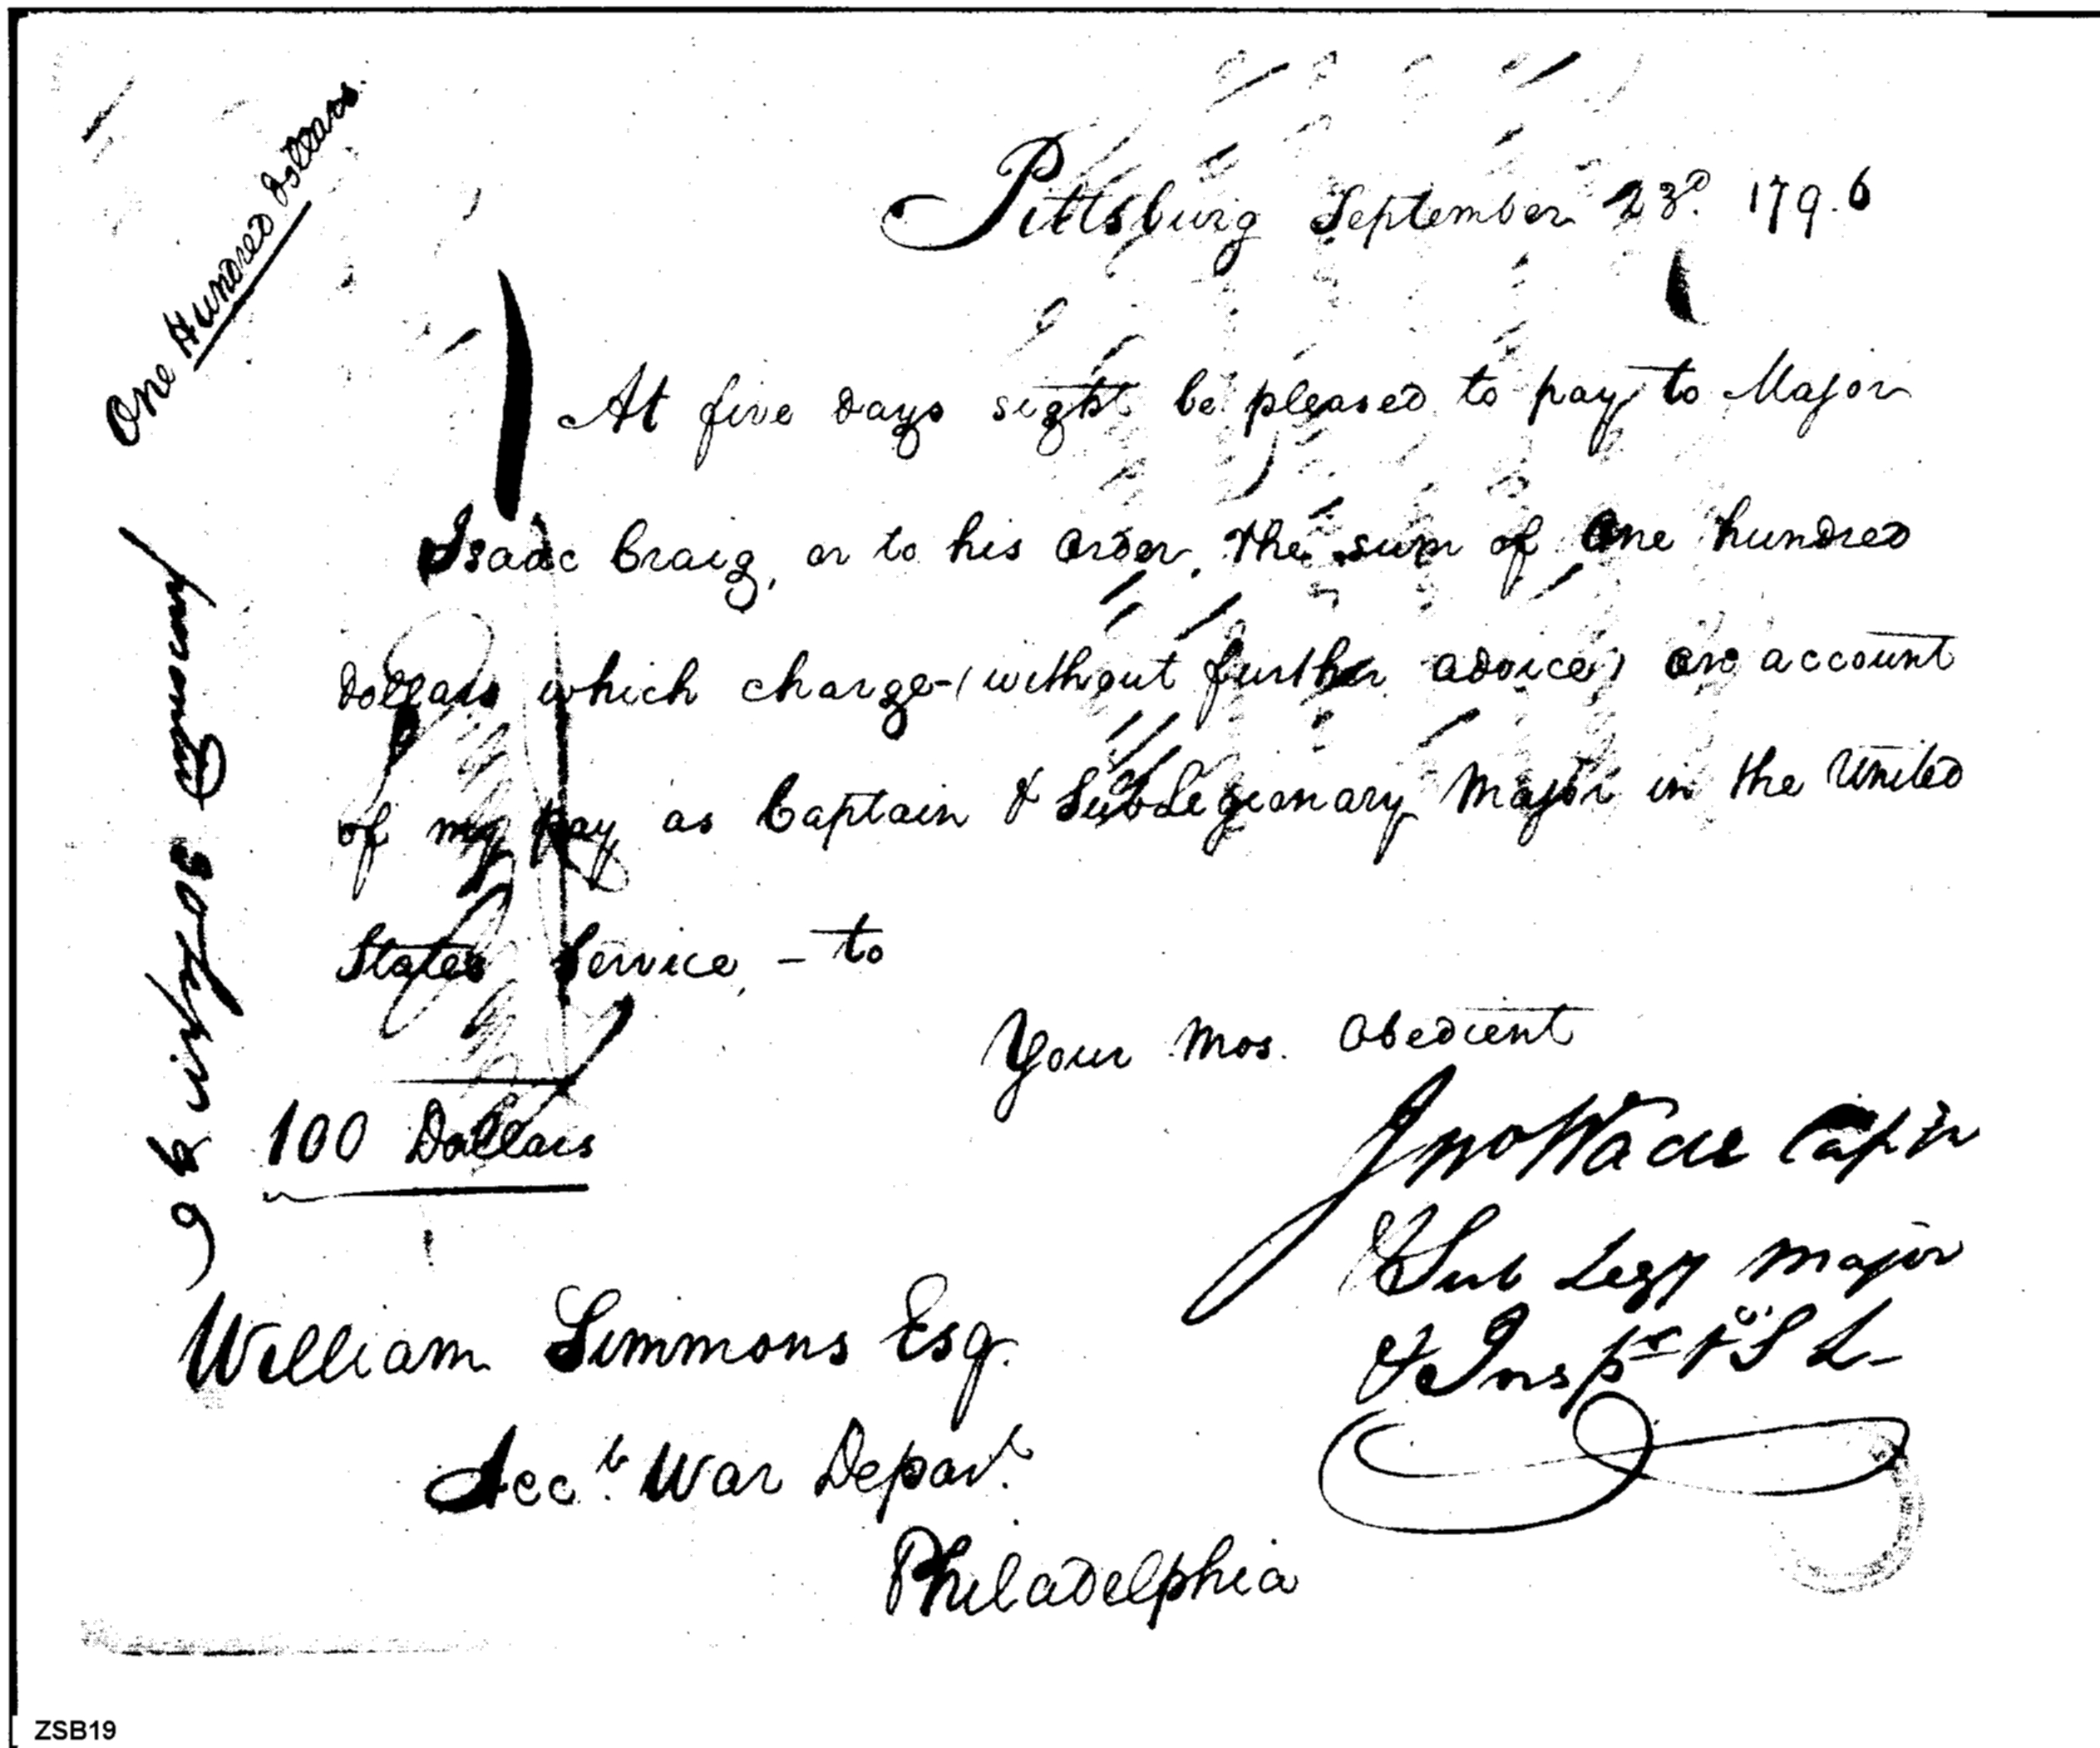 One Hundred Dollars.
Pittsburg September 23d. 179.6
At five days sight be pleased to pay to Major
Isaac Craig, or to his order, the sum of One hundred
dollars which charge (without further advice) on account
of my pay as Captain & SubLegionary Major in the United
States Service, - to
Your Mos. Obedient
100 Dollars
Jno Wade Captn
& Sub Legy Major
& Inspr
William Simmons Esq.
Acct. War Depart.
Philadelphia
ZSB19